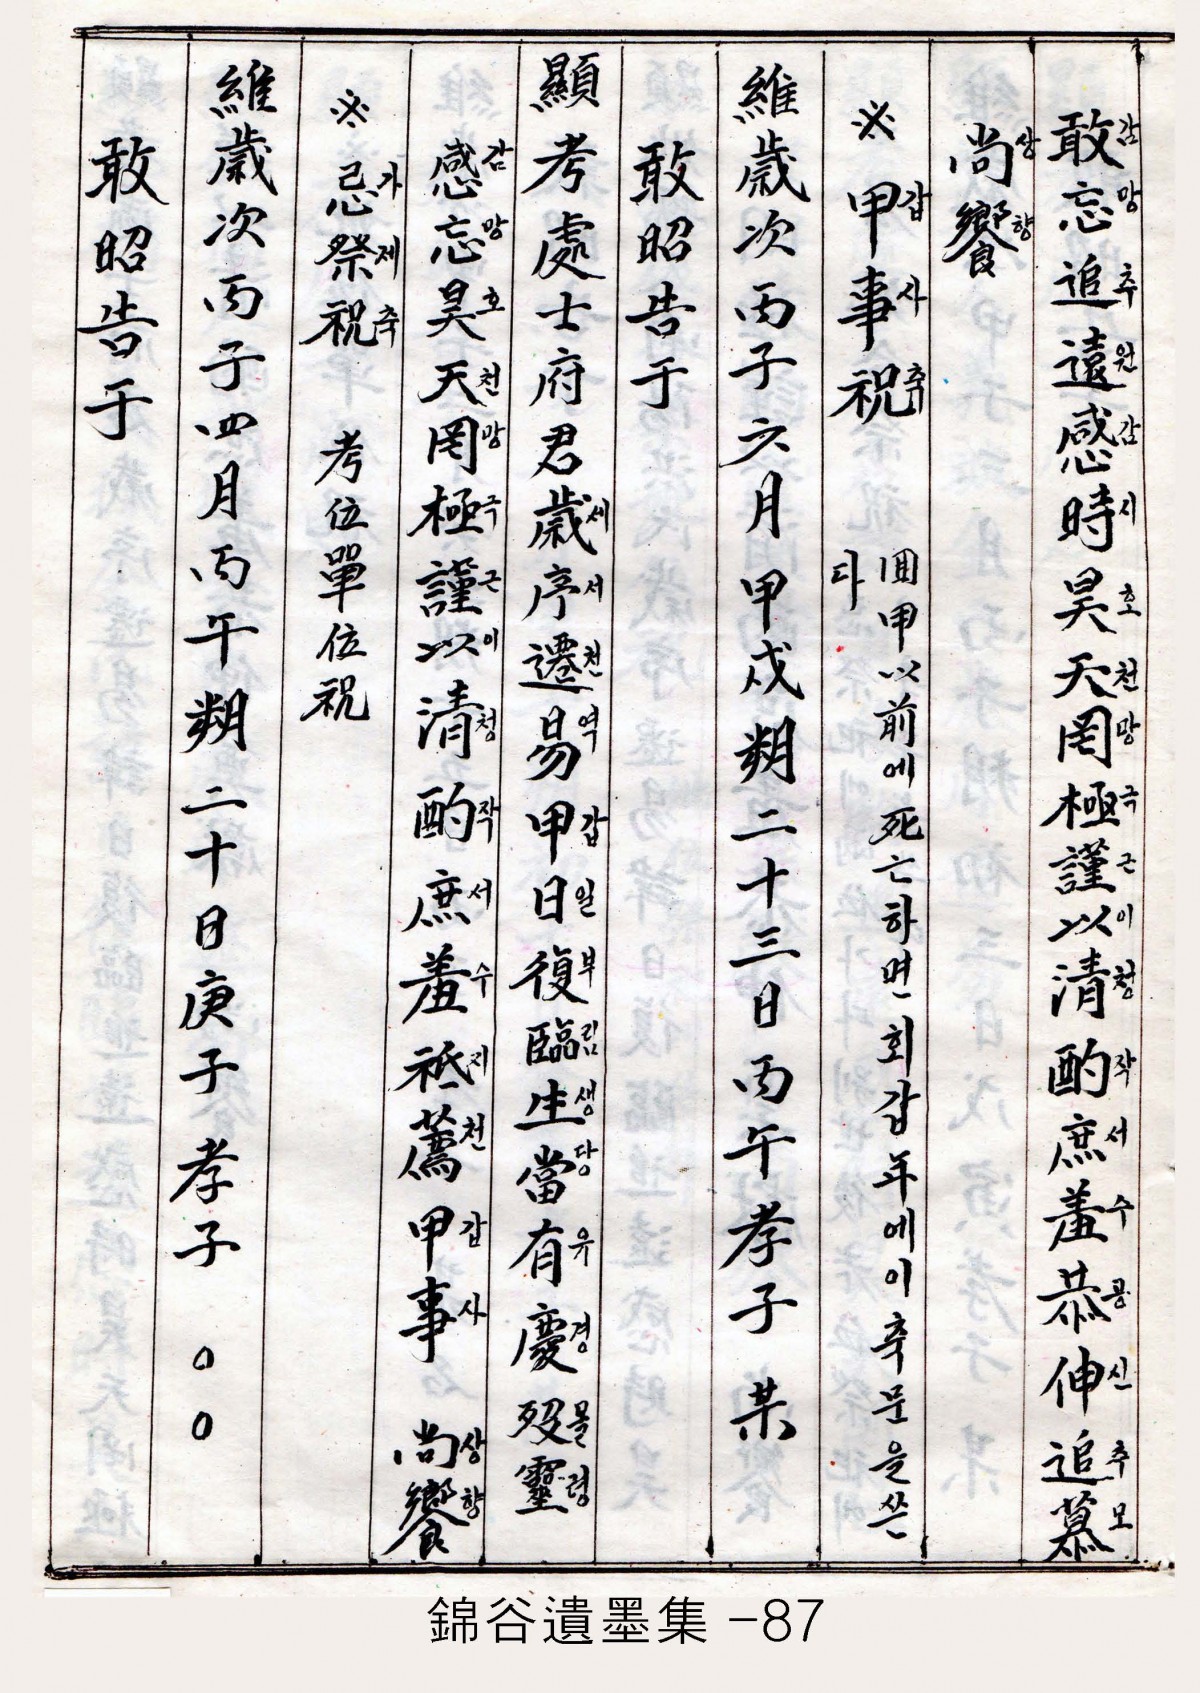 敢감忘망追추遠원感감時시昊호天천罔망極극謹근以이淸청酌작庶서羞수恭공伸신追추慕모
尙상饗향
※ 甲갑事사祝축 囬甲以前에死亡하면회갑年에이축문을쓴다
維歲次丙子六月甲戌朔二十三日丙午孝子 某
敢昭告于
顯考處士府君歲세序서遷천易역甲갑日일復부臨림生생當당有유慶경歿몰靈령
感감忘망昊호天천罔망極극謹근以이清청酌작庶서羞수祗지薦천甲갑事사 尙상饗향
※ 忌가祭제祝축 考位單位祝
維歲次丙子四月丙午朔二十日庚子孝子 ○○
敢昭告于
錦谷遺墨集 -87